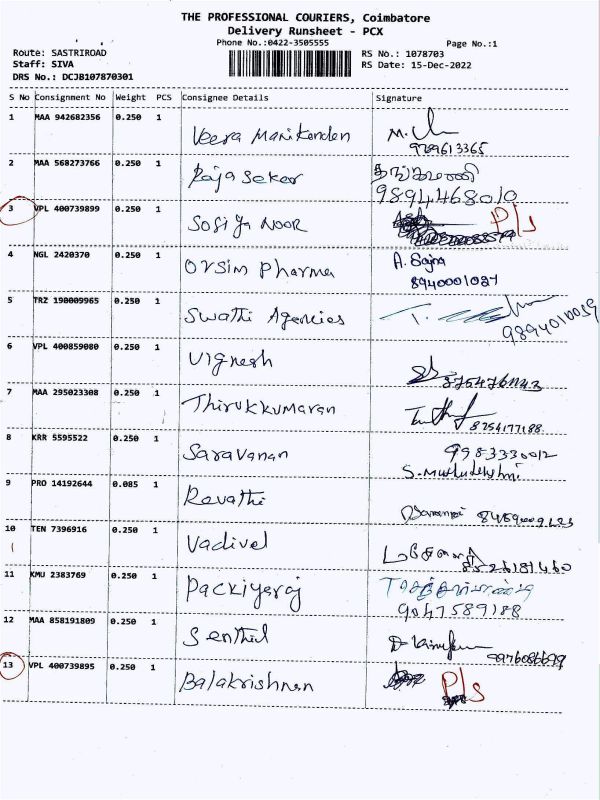 THE PROFESSIONAL COURIERS, Coimbatore
Delivery Runsheet - PCX
Phone No.:0422-3505555
Page No.:1
Route: SASTRIROAD
RS No.: 1078703
Staff: SIVA
RS Date: 15-Dec-2022
DRS No.: DCJB107870301
S No Consignment No Weight PCS Consignee Details Signature
1 MAA 942682356 0.250 1 Veera Manikanden
9789613365
2 MAA 568273766 0.250 1 Raja Seker
9894468010
3 VPL 400739899 0.250 1 Sofiya Noor P/s
4 NGL 2420370 0.250 1 Orsim Pharma A. Sajna
8940001087
5 TRZ 190009965 0.250 1 Swathi Agencies
9894010059
6 VPL 400859080 0.250 1 Vignesh
7 MAA 295023308 0.250 1 Thirukkumaran
8254177188
8 KRR 5595522 0.250 1 Saravanan 9983330012
9 PRO 14192644 0.085 1 Revathi
10 TEN 7396916 0.250 1 Vadivel
11 KMU 2383769 0.250 1 Packiyaraj
9047589188
12 MAA 858191809 0.250 1 Senthil
13 VPL 400739895 0.250 1 Balakrishnan P/s